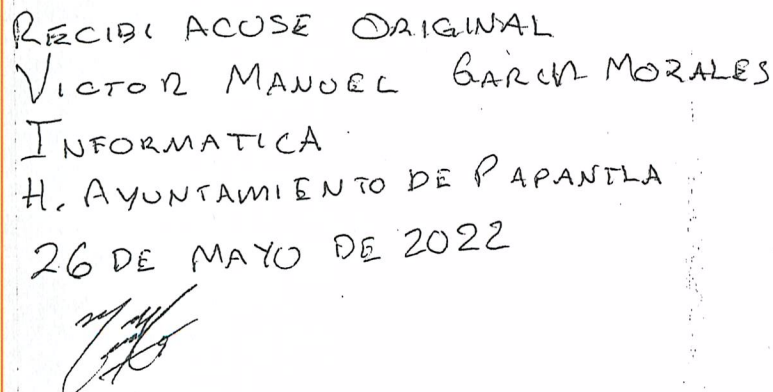 RECIBI ACUSE ORIGINAL
VICTOR MANUEL GARCIA MORALES
INFORMATICA
H. AYUNTAMIENTO DE PAPANTLA
26 DE MAYO DE 2022